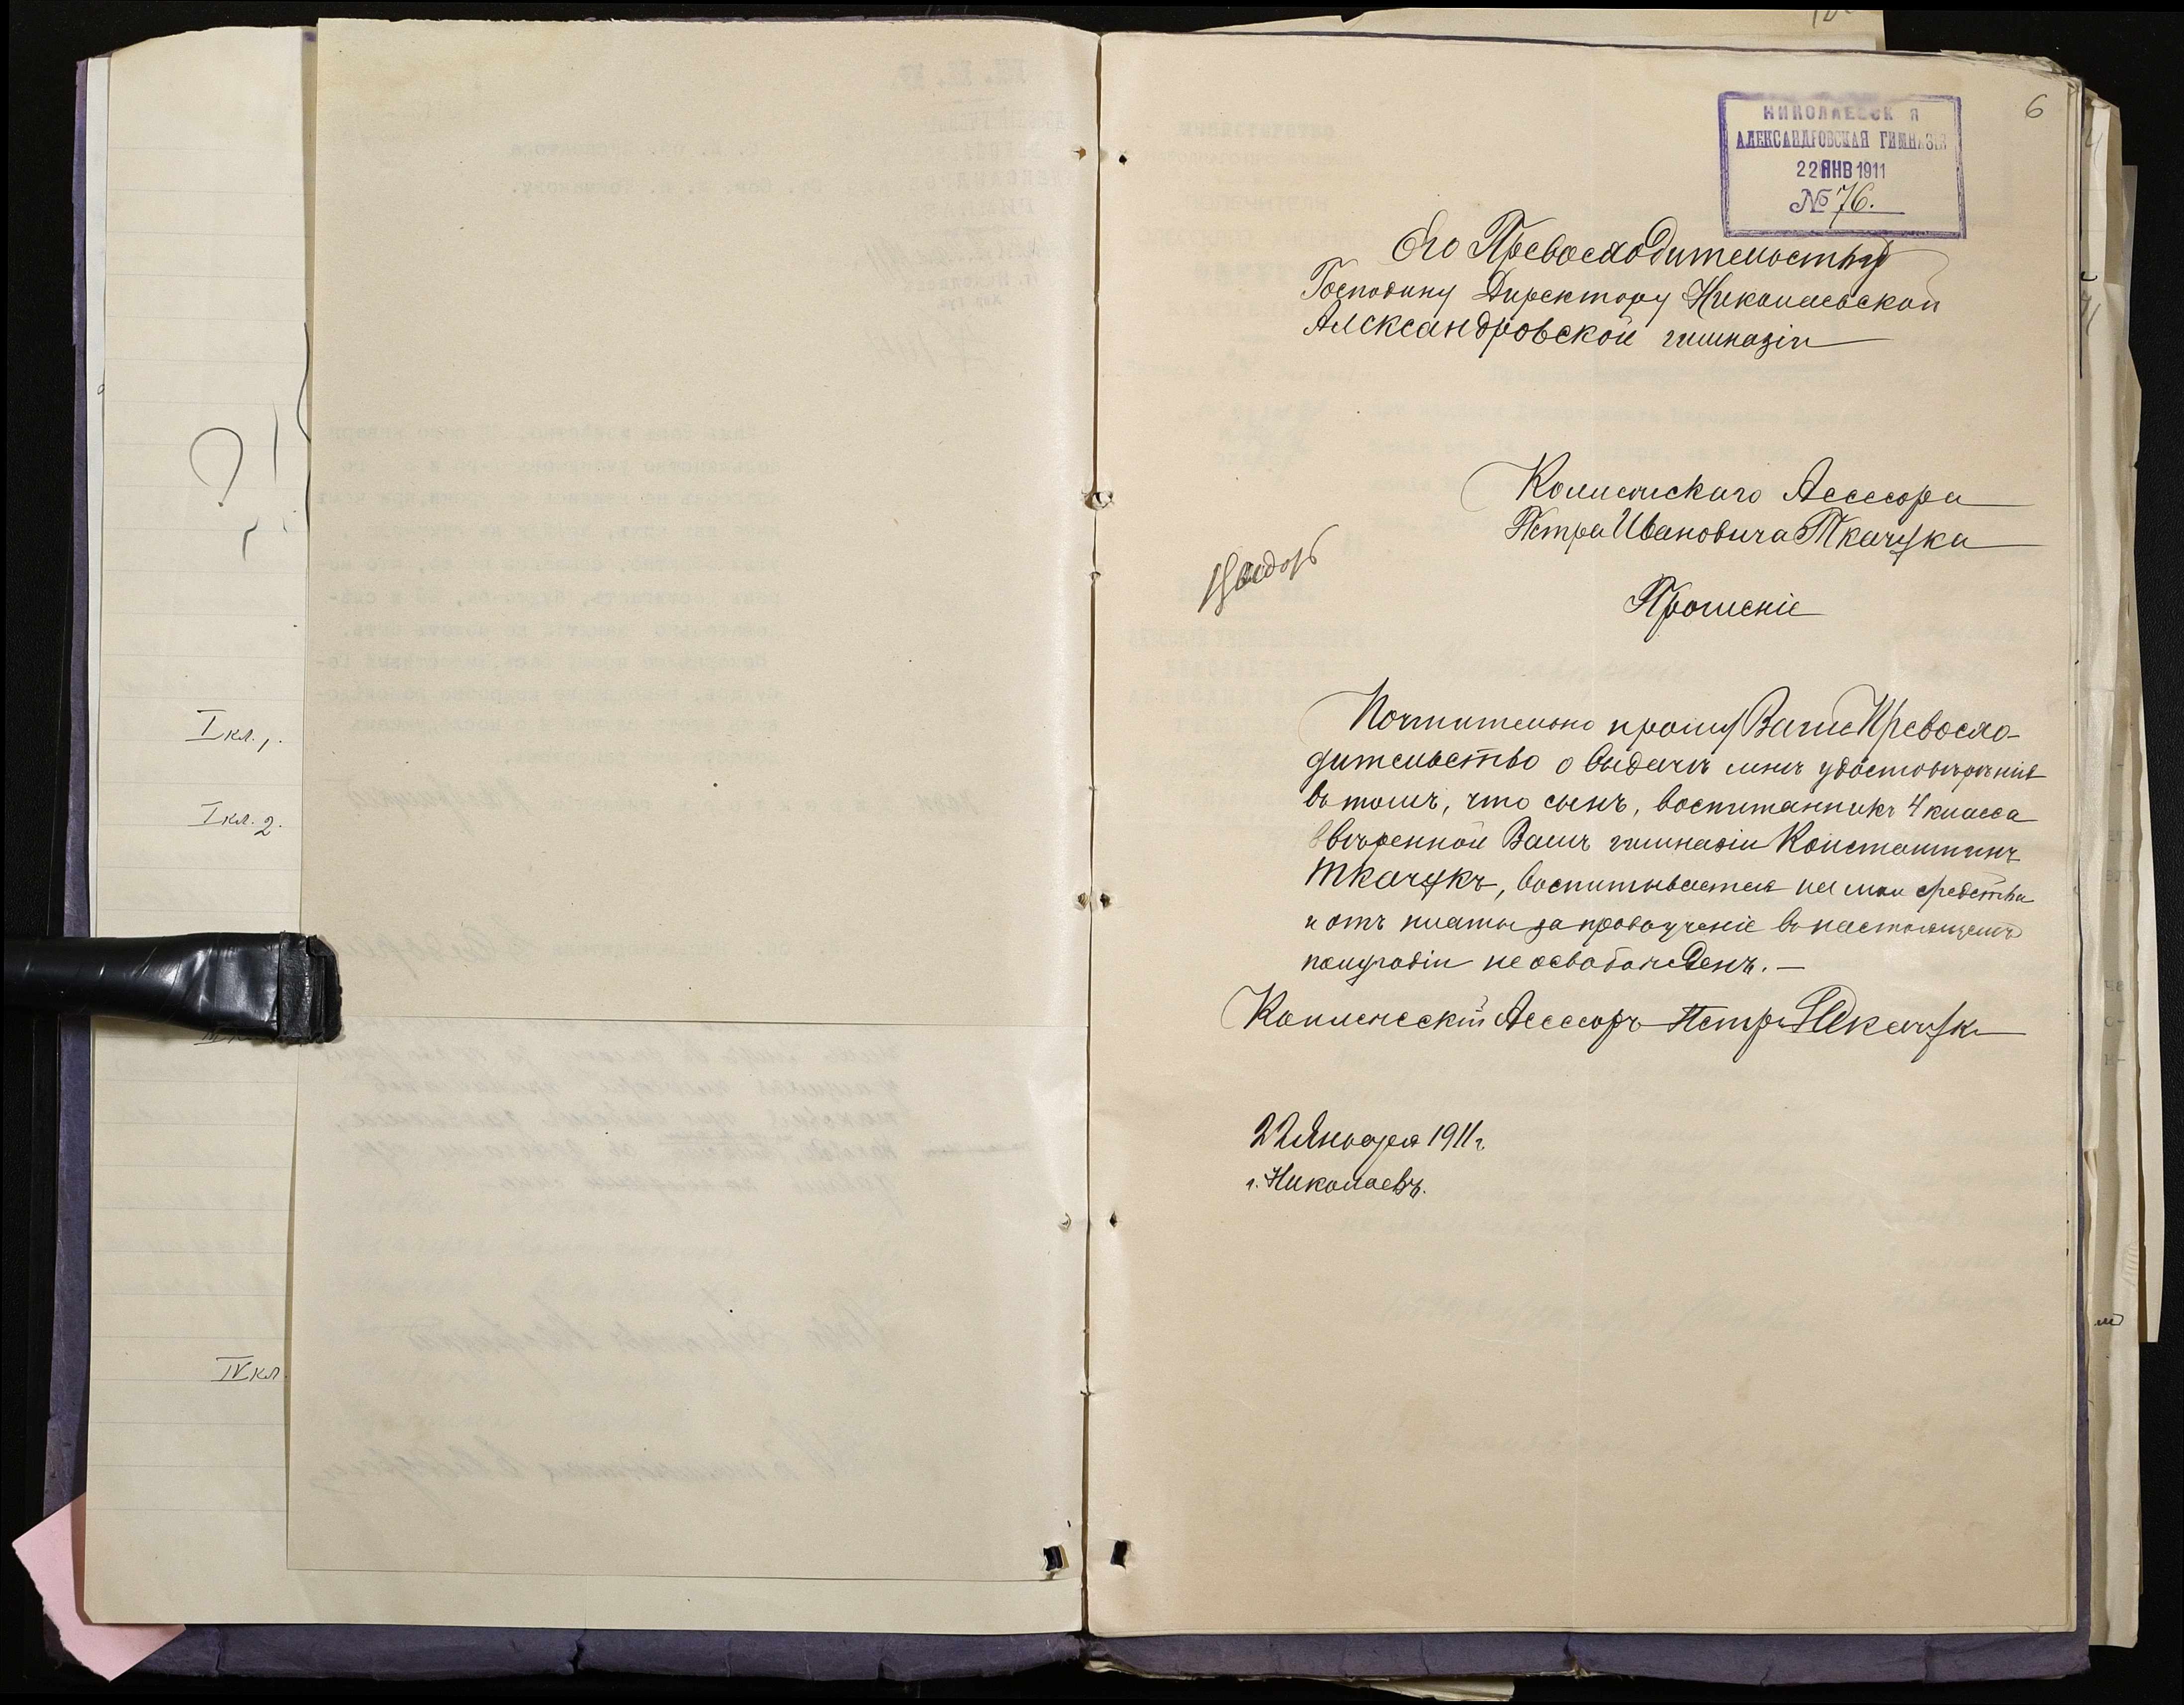 I кл. 1.
I кл. 2.
IV кл.
6
НИКОЛАЕВСК Я
АЛЕКСАНДРОВСКАЯ ГИМНАЗІЯ
22 ЯНВ 1911
№ 76.
Его Превосходительству
Господину Директору Николаевской
Александровской гимназіи
Коллежскаго Асессора
Петра Ивановича Ткачука
Прошеніе
Почтительно прошу Ваше Превосхо-
дительство о выдачѣ мнѣ удостовѣренія
въ томъ, что сынъ, воспитанникъ 4 класса
ввѣренной Вамъ гимназіи Константинъ
Ткачукъ, воспитывается на мои средства
и отъ платы за правоученіе въ настоящемъ
полугодіи не освобожденъ. —
Коллежскій Асессоръ Петръ Ткачукъ
22 Января 1911 г.
г. Николаевъ.